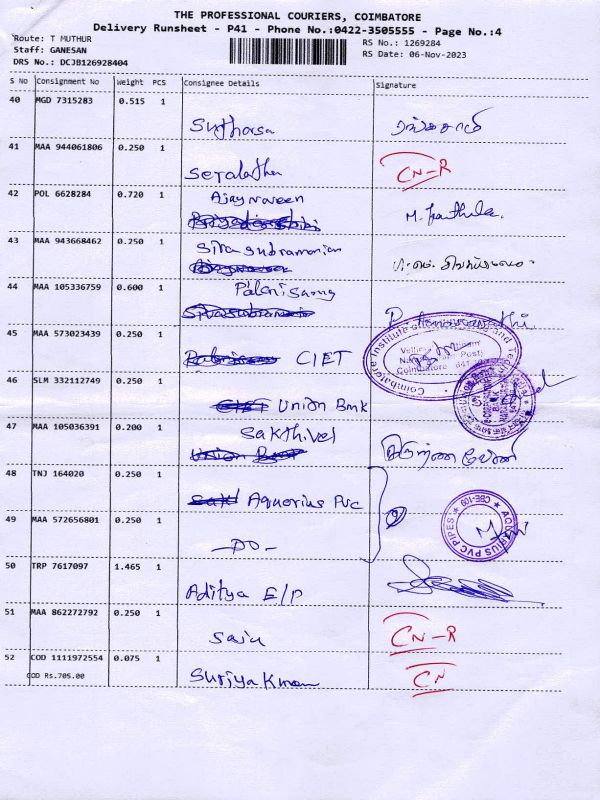 THE PROFESSIONAL COURIERS, COIMBATORE
Delivery Runsheet - P41 - Phone No.:0422-3505555 - Page No.:4
Route: T MUTHUR
RS No.: 1269284
Staff: GANESAN
RS Date: 06-Nov-2023
DRS No.: DCJB126928404
S No Consignment No Weight PCS Consignee Details Signature
40 MGD 7315283 0.515 1
41 MAA 944061806 0.250 1
CN-R
42 POL 6628284 0.720 1
Ajay naveen
43 MAA 943668462 0.250 1
Siva subramanian
44 MAA 105336759 0.600 1
Palanisamy
45 MAA 573023439 0.250 1
CIET
46 SLM 332112749 0.250 1
Union Bmk
47 MAA 105036391 0.200 1
Sakthivel
48 TNJ 164020 0.250 1
Aquarius Pvc
AQUARIUS PVC PIPES ★ CBE-109 ★
49 MAA 572656801 0.250 1
-DO-
50 TRP 7617097 1.465 1
Aditya E/P
51 MAA 862272792 0.250 1
CN-R
52 COD 1111972554 0.075 1
COD Rs.705.00
CN